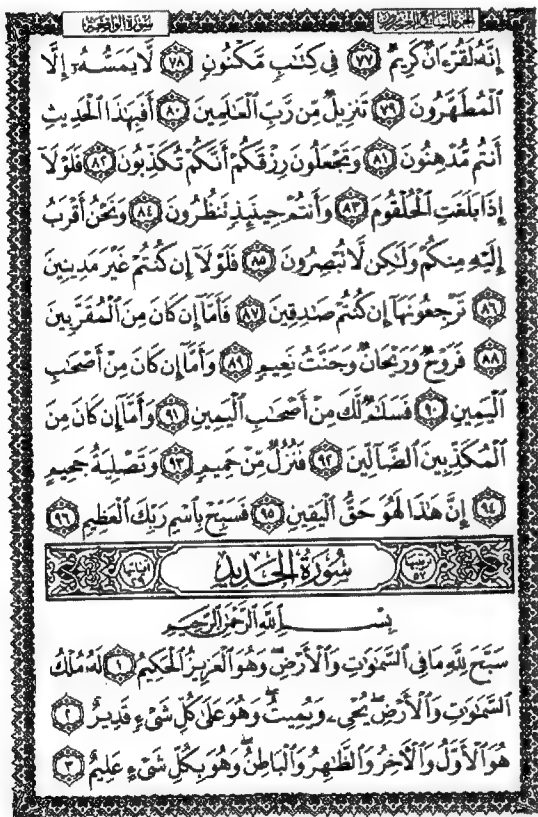 سورة الواقعة الجزء السابع والعشرون
إِنَّهُ لَقُرْءَانٌ كَرِيمٌ ٧٧ فِي كِتَٰبٍ مَّكْنُونٍ ٧٨ لَّا يَمَسُّهُۥٓ إِلَّا
ٱلْمُطَهَّرُونَ ٧٩ تَنزِيلٌ مِّن رَّبِّ ٱلْعَٰلَمِينَ ٨٠ أَفَبِهَٰذَا ٱلْحَدِيثِ
أَنتُم مُّدْهِنُونَ ٨١ وَتَجْعَلُونَ رِزْقَكُمْ أَنَّكُمْ تُكَذِّبُونَ ٨٢ فَلَوْلَآ
إِذَا بَلَغَتِ ٱلْحُلْقُومَ ٨٣ وَأَنتُمْ حِينَئِذٍ تَنظُرُونَ ٨٤ وَنَحْنُ أَقْرَبُ
إِلَيْهِ مِنكُمْ وَلَٰكِن لَّا تُبْصِرُونَ ٨٥ فَلَوْلَآ إِن كُنتُمْ غَيْرَ مَدِينِينَ
٨٦ تَرْجِعُونَهَآ إِن كُنتُمْ صَٰدِقِينَ ٨٧ فَأَمَّآ إِن كَانَ مِنَ ٱلْمُقَرَّبِينَ
٨٨ فَرَوْحٌ وَرَيْحَانٌ وَجَنَّتُ نَعِيمٍ ٨٩ وَأَمَّآ إِن كَانَ مِنْ أَصْحَٰبِ
ٱلْيَمِينِ ٩٠ فَسَلَٰمٌ لَّكَ مِنْ أَصْحَٰبِ ٱلْيَمِينِ ٩١ وَأَمَّآ إِن كَانَ مِنَ
ٱلْمُكَذِّبِينَ ٱلضَّآلِّينَ ٩٢ فَنُزُلٌ مِّنْ حَمِيمٍ ٩٣ وَتَصْلِيَةُ جَحِيمٍ
٩٤ إِنَّ هَٰذَا لَهُوَ حَقُّ ٱلْيَقِينِ ٩٥ فَسَبِّحْ بِٱسْمِ رَبِّكَ ٱلْعَظِيمِ ٩٦
ترتيبها ٥٧ سُورَةُ الحَدِيدِ آياتها ٢٩
بِسْمِ ٱللَّهِ ٱلرَّحْمَٰنِ ٱلرَّحِيمِ
سَبَّحَ لِلَّهِ مَا فِي ٱلسَّمَٰوَٰتِ وَٱلْأَرْضِ ۖ وَهُوَ ٱلْعَزِيزُ ٱلْحَكِيمُ ١ لَهُۥ مُلْكُ
ٱلسَّمَٰوَٰتِ وَٱلْأَرْضِ ۖ يُحْيِۦ وَيُمِيتُ ۖ وَهُوَ عَلَىٰ كُلِّ شَيْءٍ قَدِيرٌ ٢
هُوَ ٱلْأَوَّلُ وَٱلْءَاخِرُ وَٱلظَّٰهِرُ وَٱلْبَاطِنُ ۖ وَهُوَ بِكُلِّ شَيْءٍ عَلِيمٌ ٣